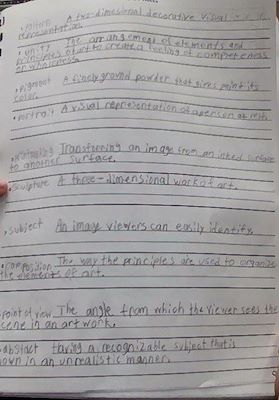 • pattern A two-dimesional decorative visual
representation.
• unity The arrangement of elements and
principles of art to create a feeling of completeness
or wholeness.
• pigment A finely ground powder that gives paint its
color.
• portrait A visual representation of a person at rest.
• printmaking Transfuring an image from an inked surface
to another surface.
• sculpture A three-dimensional work of art.
• subject An image viewers can easily identify.
• composition The way the principles are used to organize
the elements of art.
point of view The angle from which the viewer sees the
scene in an art work.
abstract Having a recognizable subject that is
own in an unrealistic manner.